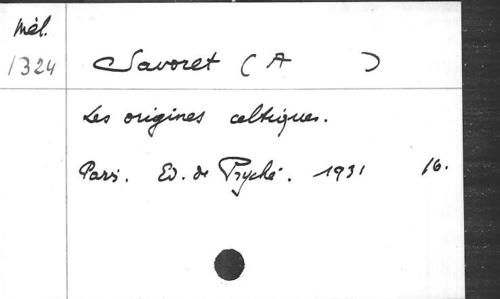 Mél.
1324 Savoret ( A )
Les origines celtiques.
Paris. Ed. de Psyché. 1931 16.